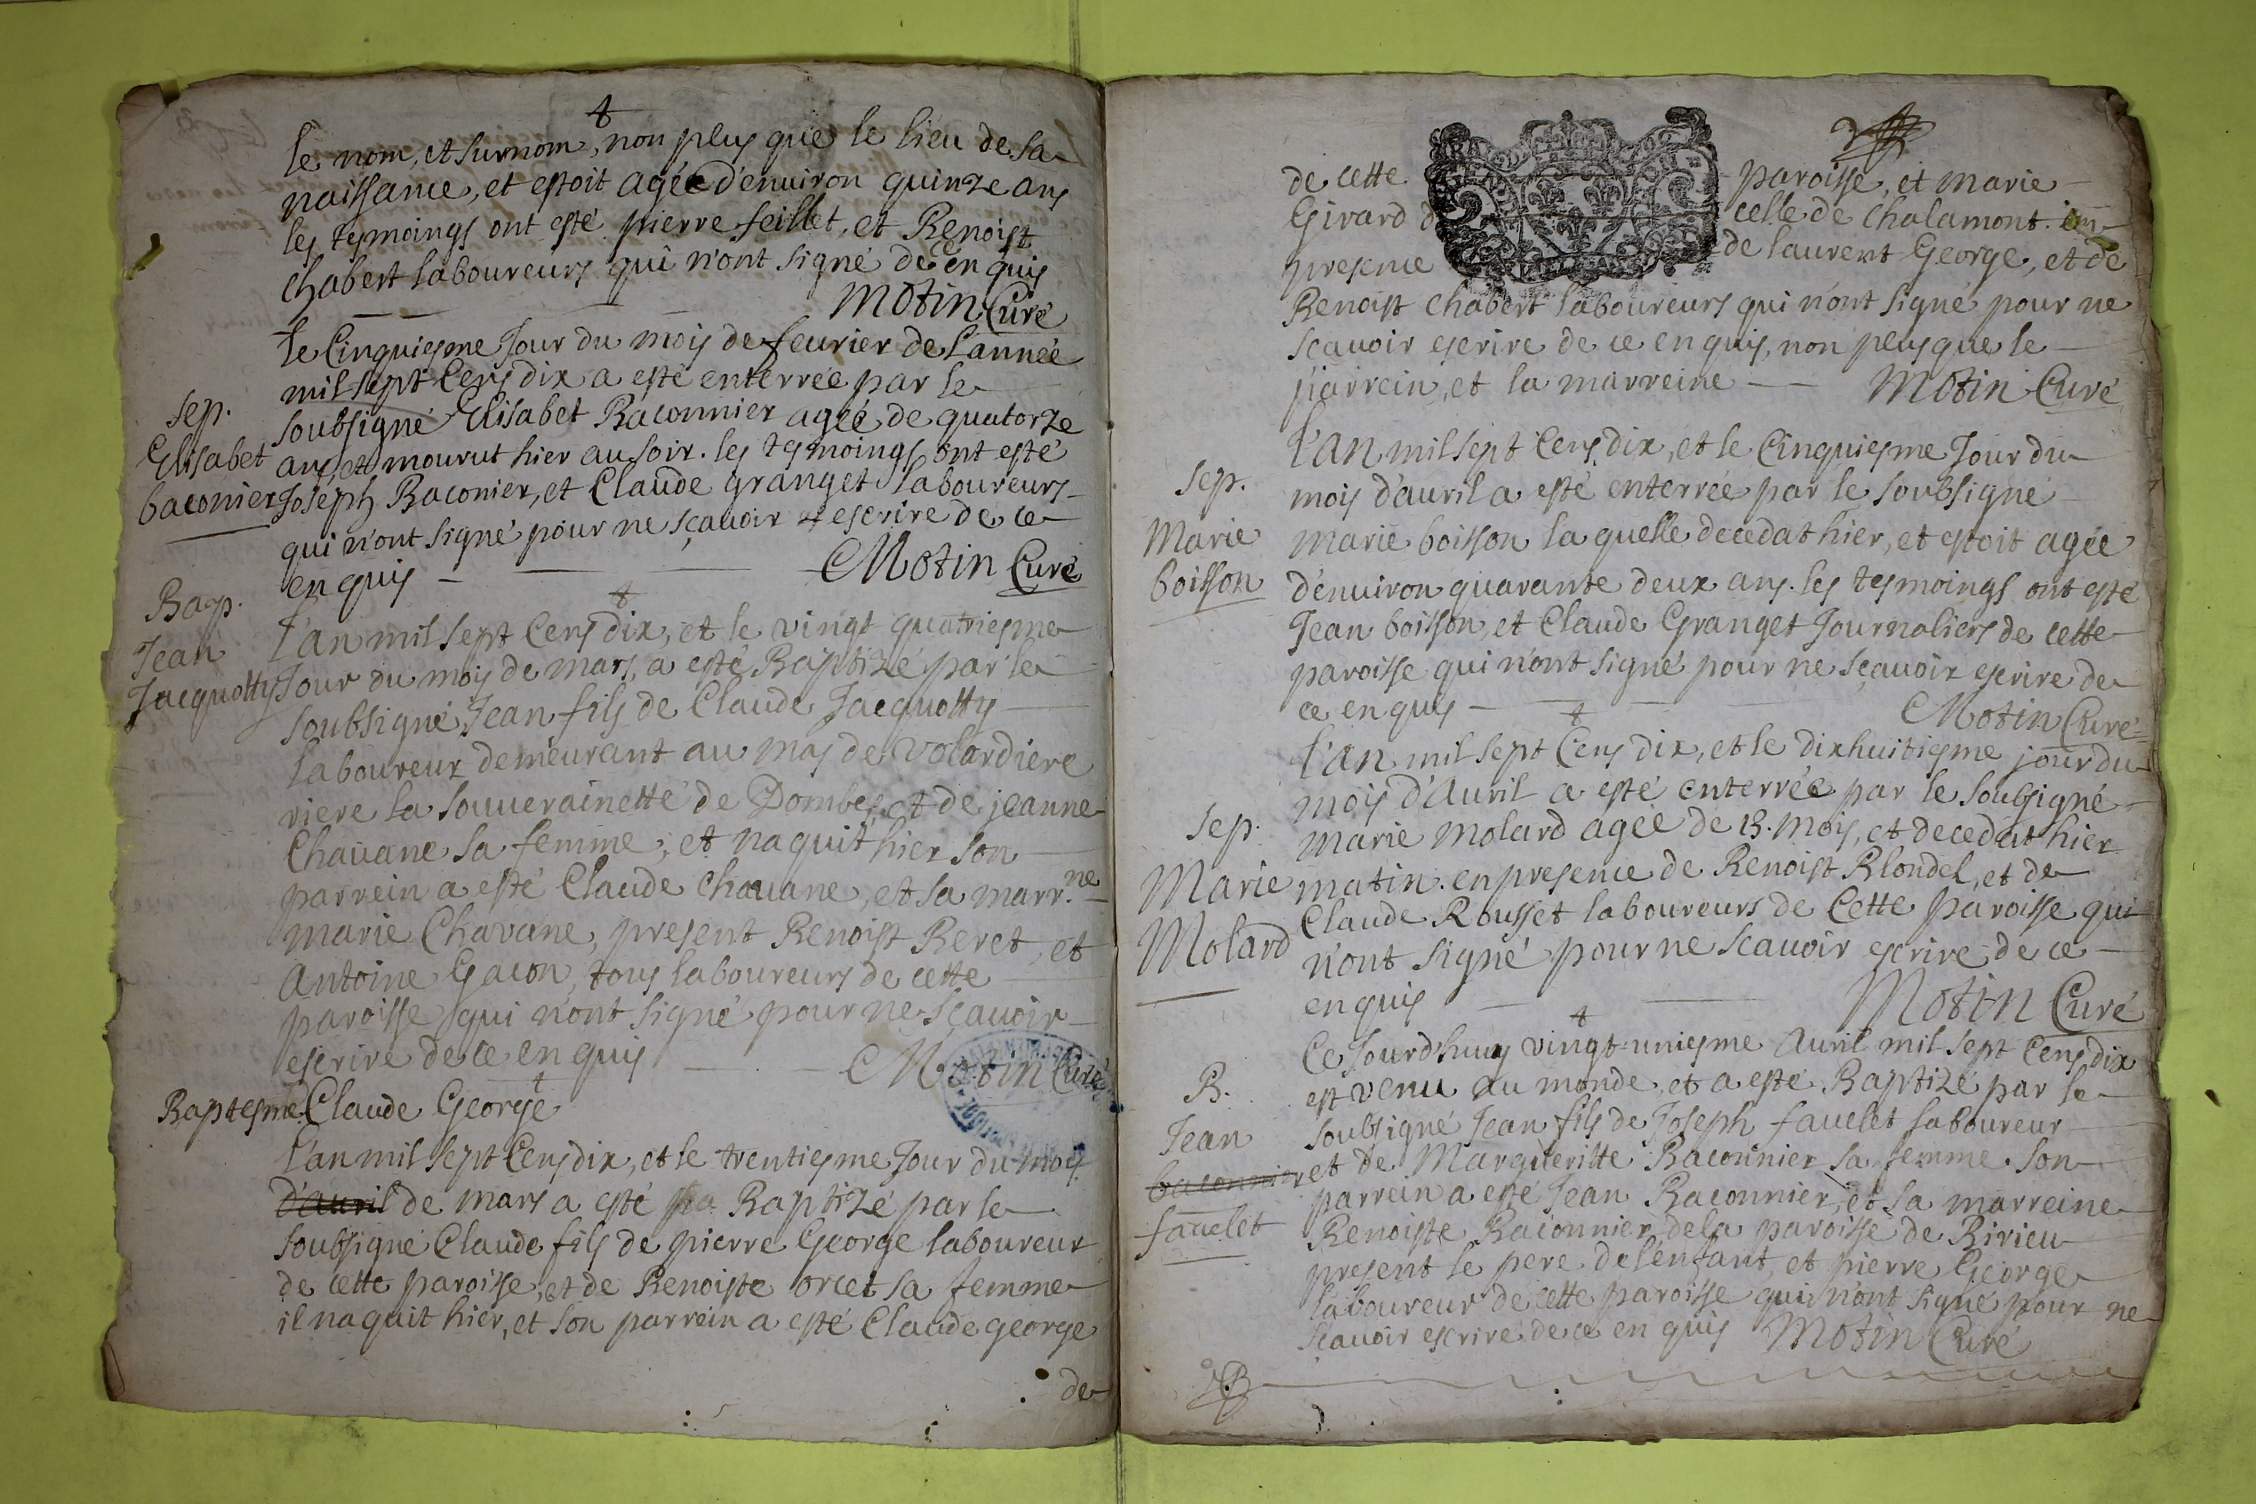 le nom, et surnom, non plus que le lieu de sa
naissance, et estoit agée d'enuiron quinze ans
les tesmoings ont esté pierre feillet, et Benoist
chabert laboureurs qui n'ont signé de ce enquis
Motin Curé
le Cinquiesme Jour du mois de feurier de l'année
mil sept Cens dix a esté enterrée par le
sep.
soubsigné Elisabet Baconnier agée de quatorze
Elisabet
ans, et mourut hier au soir. les tesmoings ont esté
baconier
Joseph Baconier, et Claude granget laboureurs
qui n'ont signé pour ne sçauoir escrire de ce
enquis
Motin Curé
Bap.
Jean
Jacquotty
l'an mil sept Cens dix, et le vingt quatriesme
Jour du mois de mars, a esté Baptizé par le
soubsigné Jean fils de Claude Jacquotty
laboureur demeurant au mas de volardiere
riere la souuerainetté de Dombes, et de jeanne
Chauane sa femme, et naquit hier son
parrein a esté Claude chauane, et sa marr.ne
marie Chavane, present Benoist Beret, et
Antoine Gacon, tous laboureurs de cette
paroisse qui n'ont signé pour ne sçauoir
escrire de ce enquis
Motin Curé
Baptesme Claude George
l'an mil sept Cens dix, et le trentiesme Jour du mois
d'auril de mars a esté Baptizé par le
soubsigné Claude fils de pierre George laboureur
de cette paroisse, et de Benoiste orcet sa femme
il naquit hier, et son parrein a esté Claude george
de
de cette paroisse, et marie
Girard d celle de Chalamont. en
presence de laurent George, et de
Benoist Chabert laboureurs qui n'ont signé pour ne
scauoir escrire de ce enquis, non plus que le
parrein, et la marreine Motin Curé
l'an mil sept Cens dix, et le Cinquiesme Jour du
sep.
mois d'auril a esté enterrée par le soubsigné
Marie
marie boisson la quelle decedat hier, et estoit agée
boisson
d'enuiron quarante deux ans. les tesmoings ont esté
Jean boisson, et Claude Granget Journaliers de cette
paroisse qui n'ont signé pour ne sçauoir escrire de
ce enquis
Motin Curé
l'an mil sept Cens dix, et le dixhuitiesme jour du
mois d'Auril a esté enterrée par le soubsigné
sep.
marie molard agée de 13. mois, et decedat hier
Marie
matin. en presence de Benoist Blondel, et de
Molard
Claude Rousset laboureurs de Cette paroisse qui
n'ont signé pour ne scauoir escrire de ce
enquis
Motin Curé
Ce Jourd'huy vingt-uniesme Auril mil sept Cens dix
B.
est venu au monde, et a esté Baptizé par le
Jean
soubsigné Jean fils de Joseph fauelet laboureur
baconnier
et de Margueritte Baconnier sa femme. son
parrein a esté Jean Baconnier, et sa marreine
fauelet
Benoiste Baconnier dela paroisse de Birieu
present le pere del'enfant, et pierre George
laboureur de cette paroisse qui n'ont signé pour ne
scauoir escrire de ce enquis Motin Curé